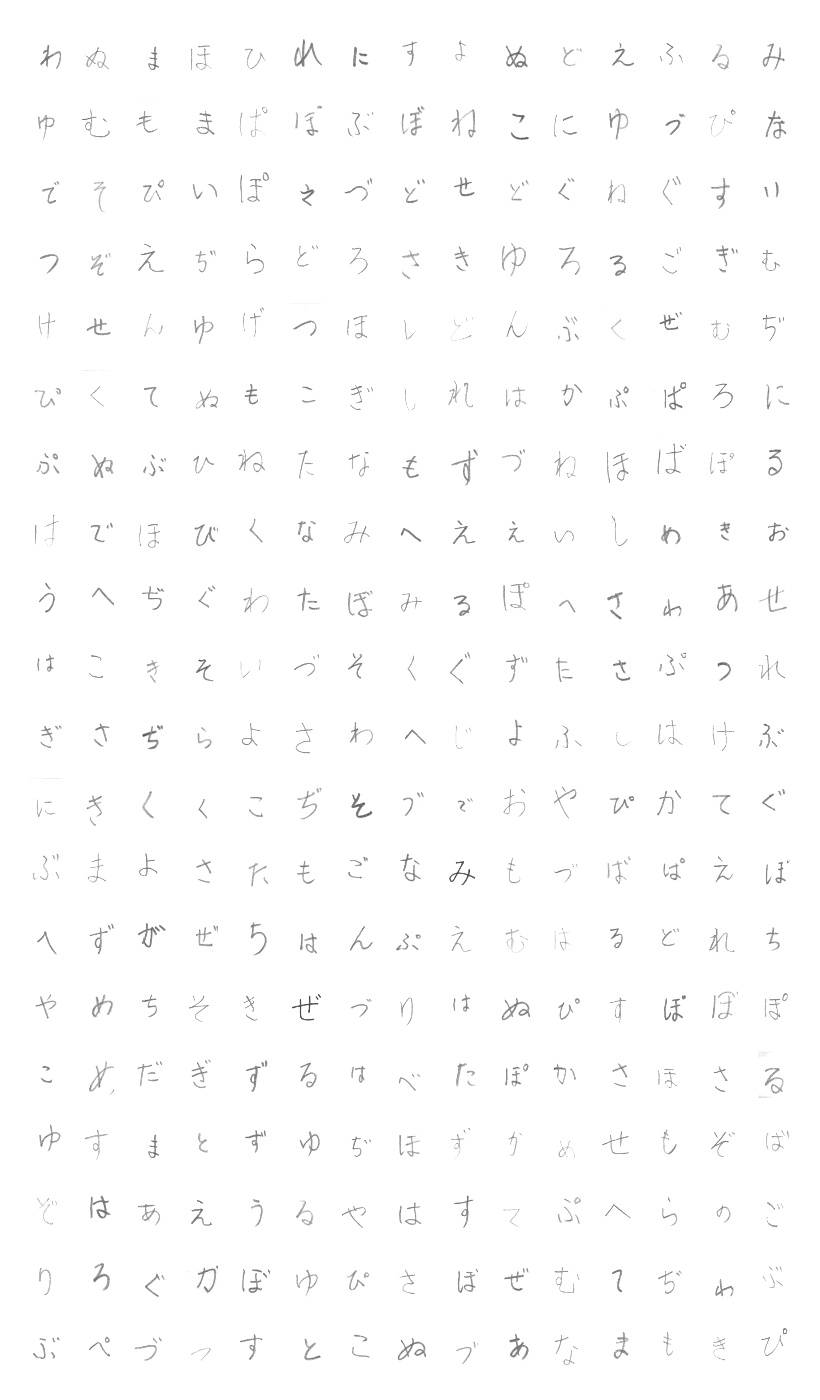 わぬまほひれにすよぬどえふるみ
ゆむもまぱぽぶぼねこにゆづぴな
でそぴいぽえづどせどぐねぐすい
つぞえぢらどろさきゆろるごぎむ
けせんゆげつほしどんぶくぜむぢ
ぴくてぬもこぎしれはかぷぱろに
ぷぬぶひねたなもずづねほばぽる
はでほびくなみへええいしめきお
うへぢぐわたぼみるぽへさわあせ
はこきそいづそくぐずたさぷつれ
ぎさぢらよさわへじよふしはけぶ
にきくくこぢそづでおやぴかてぐ
ぶまよさたもごなみもづばぱえぼ
へずがぜちはんぷえむはるどれち
やめちそきぜづりはぬぴすぽぼぽ
こめだぎずるはべたぽかさほさる
ゆすまとずゆぢほずかめせもぞば
ぞはあえうるやはすてぷへらのご
りろぐかぼゆぴさぼぜむてぢわぶ
ぶぺづっすとこぬづあなまもきぴ